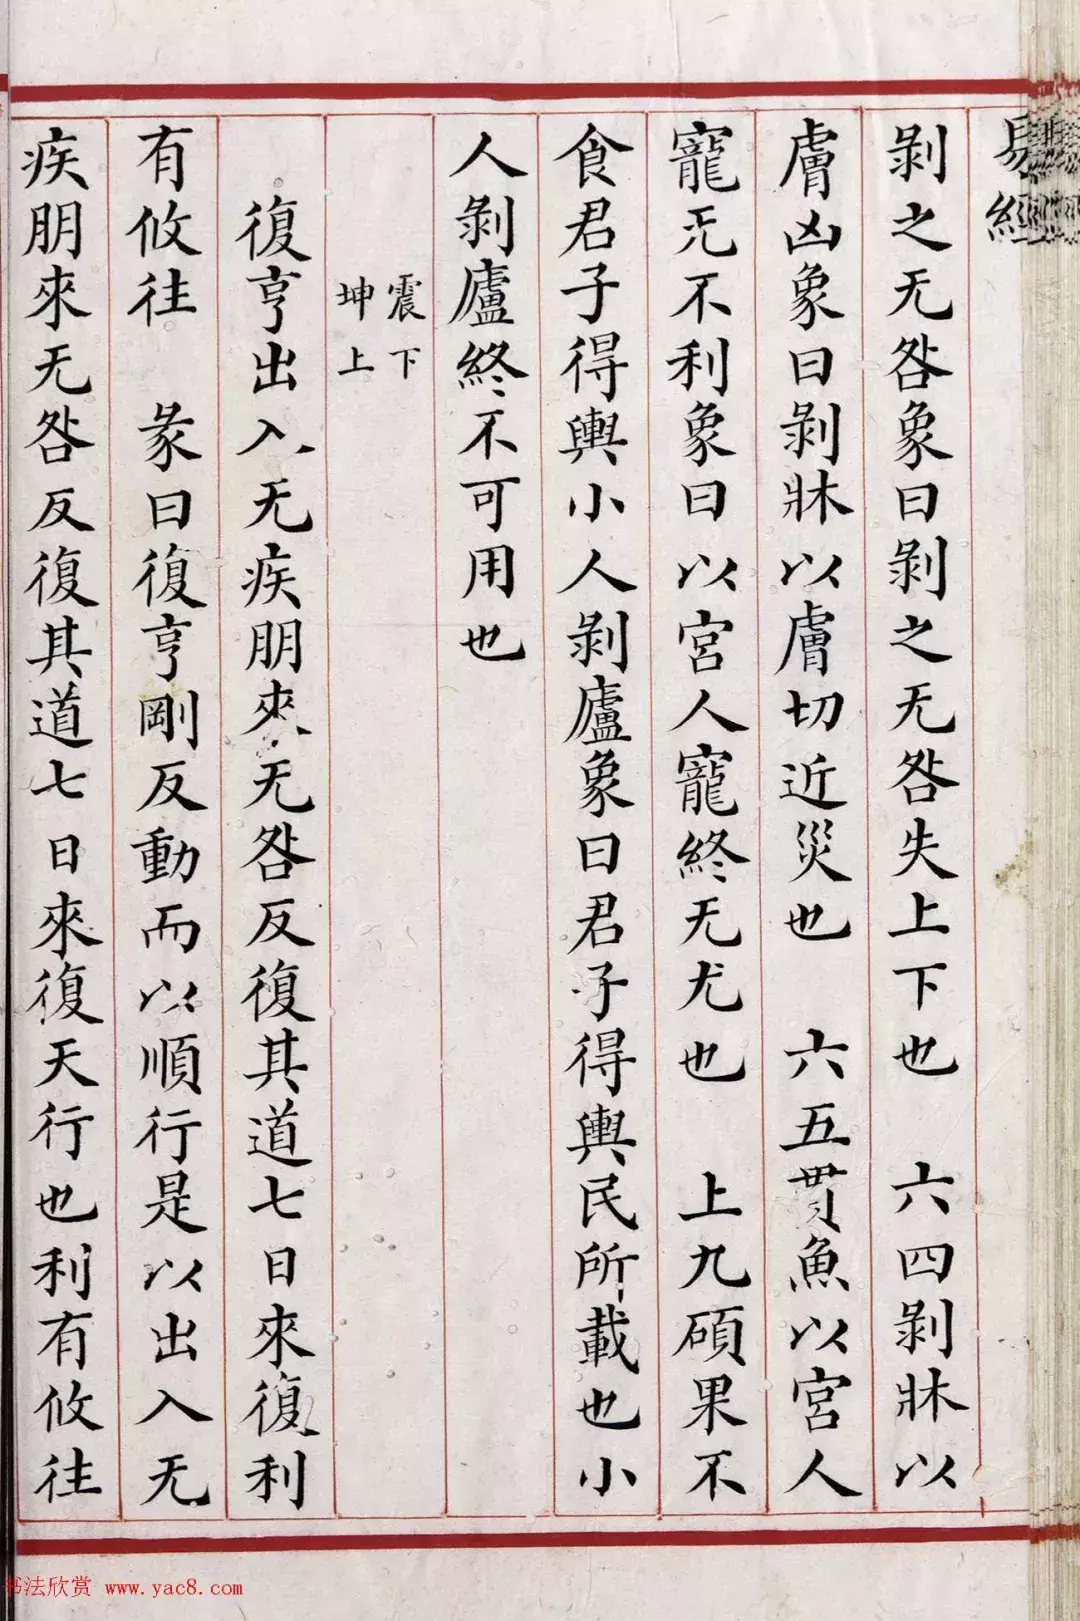 易經
剝之无咎象曰剝之无咎失上下也　六四剝牀以
膚凶象曰剝牀以膚切近災也　六五貫魚以宮人
寵无不利象曰以宮人寵終无尤也　上九碩果不
食君子得輿小人剝廬象曰君子得輿民所載也小
人剝廬終不可用也
震下
坤上
復亨出入无疾朋來无咎反復其道七日來復利
有攸往　彖曰復亨剛反動而以順行是以出入无
疾朋來无咎反復其道七日來復天行也利有攸往
书法欣赏 www.yac8.com